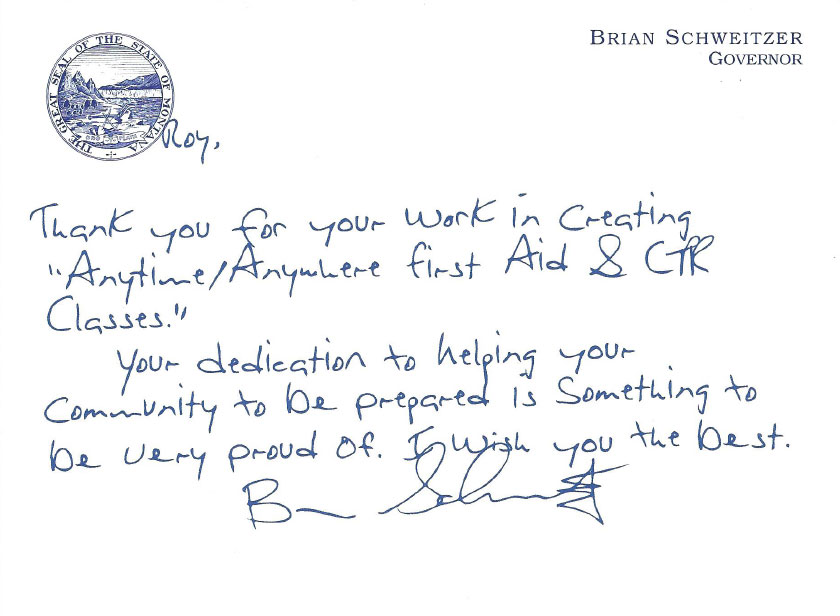 BRIAN SCHWEITZER
GOVERNOR
THE GREAT SEAL OF THE STATE OF MONTANA
Roy,
Thank you for your work in Creating
"Anytime/Anywhere first Aid & CPR
Classes."
Your dedication to helping your
Community to be prepared is Something to
be very proud of. I wish you the best.